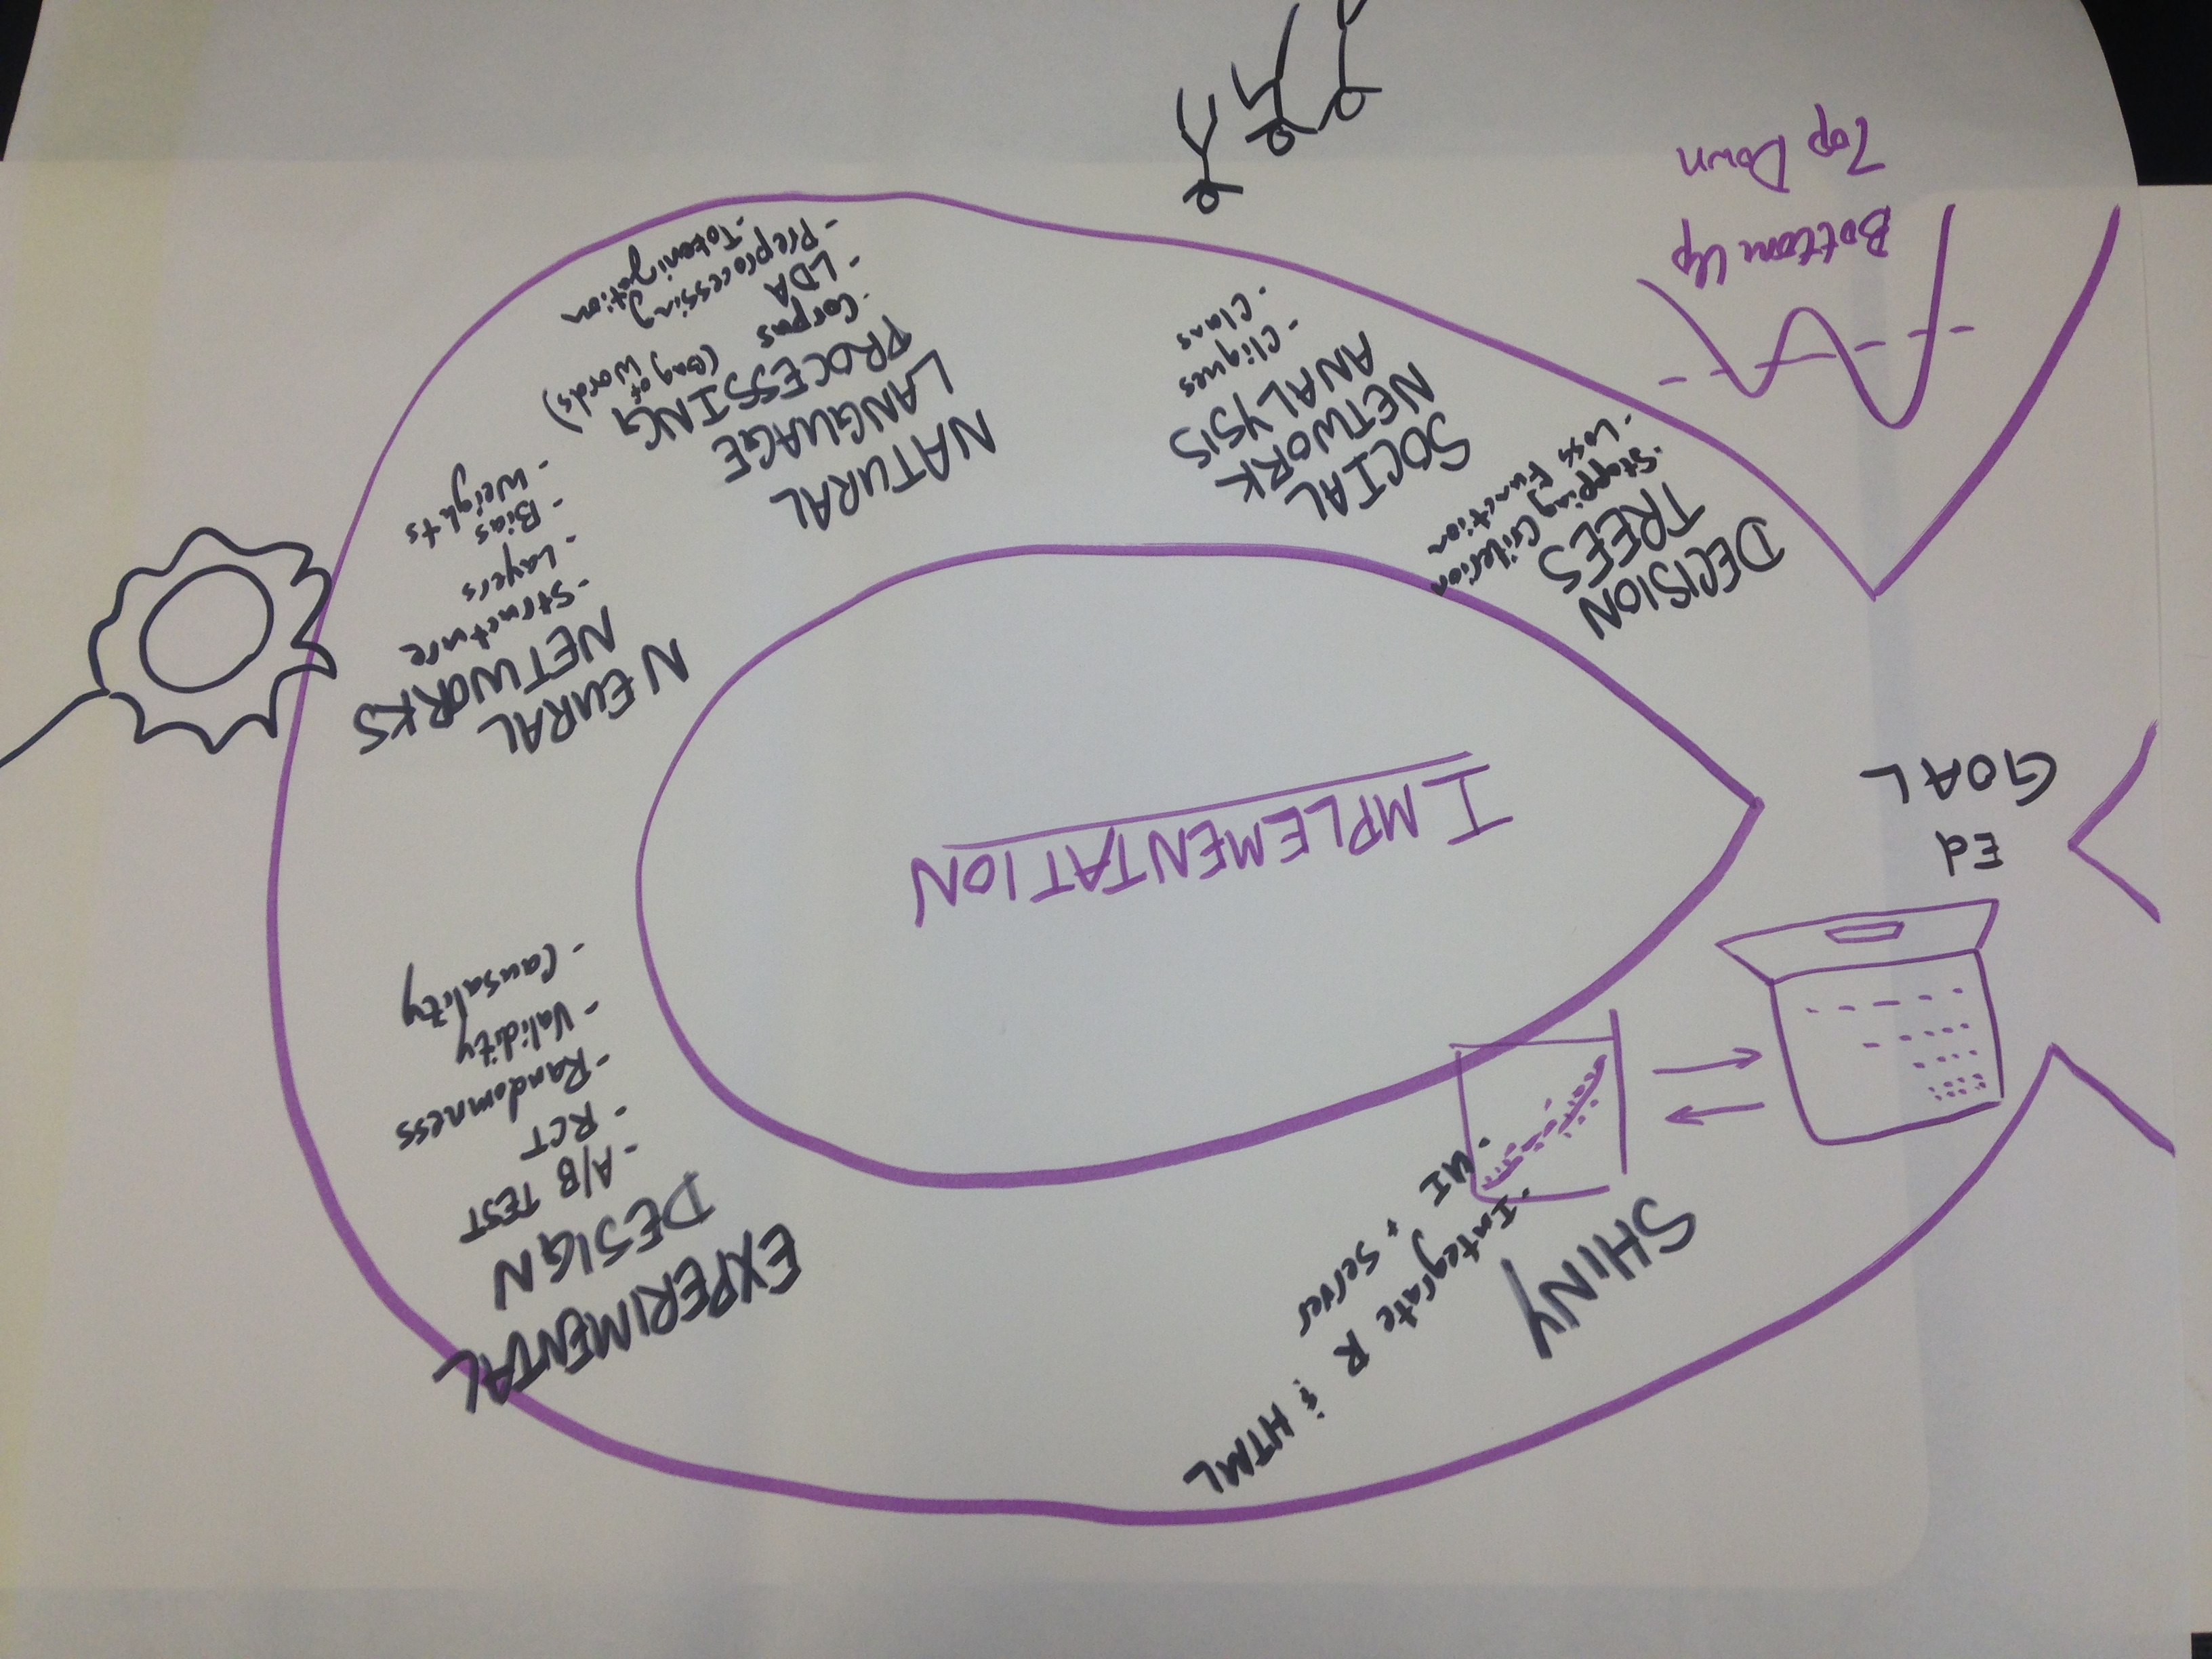 SHINY
· Integrate R & HTML
· UI + Server
EXPERIMENTAL
DESIGN
- A/B TEST
- RCT
- Randomness
- Validity
- Causality
Ed
GOAL
IMPLEMENTATION
NEURAL
NETWORKS
- Structure
- Layers
- Bias
- Weights
DECISION
TREES
· Stopping Criterion
- Loss Function
SOCIAL
NETWORK
ANALYSIS
- Cliques
- Clans
NATURAL
LANGUAGE
PROCESSING
- Corpus (Bag of
Words)
- LDA
- Preprocessing
- Tokenization
Bottom Up
Top Down